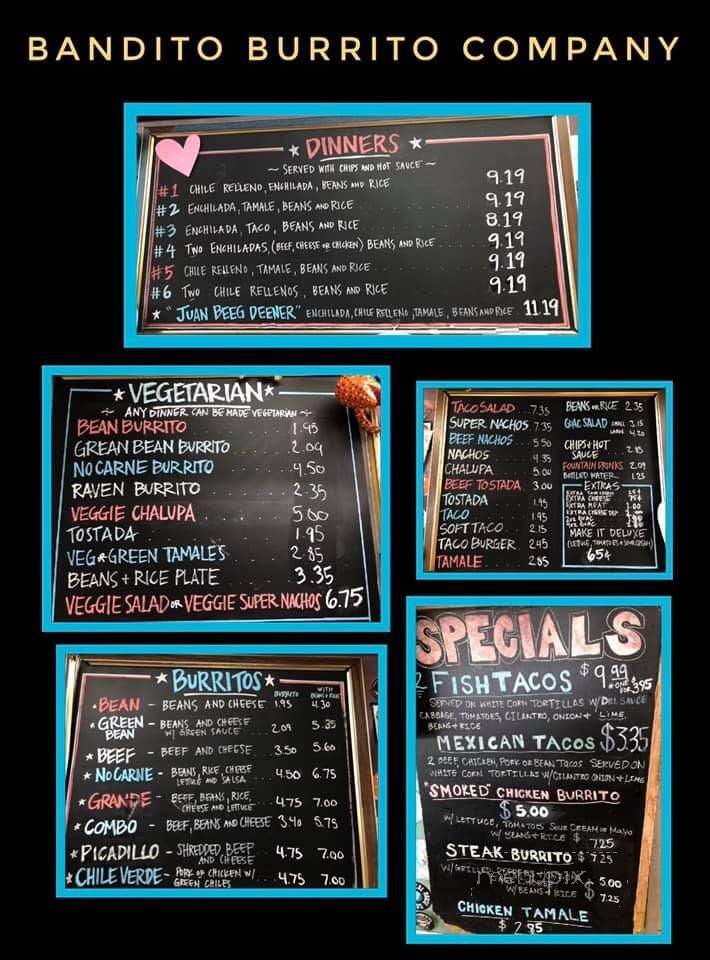 BANDITO BURRITO COMPANY
★ DINNERS ★
~ SERVED WITH CHIPS AND HOT SAUCE ~
#1 CHILE RELLENO, ENCHILADA, BEANS AND RICE 9.19
#2 ENCHILADA, TAMALE, BEANS AND RICE 9.19
#3 ENCHILADA, TACO, BEANS AND RICE 8.19
#4 TWO ENCHILADAS, (BEEF, CHEESE OR CHICKEN) BEANS AND RICE 9.19
#5 CHILE RELLENO, TAMALE, BEANS AND RICE 9.19
#6 TWO CHILE RELLENOS, BEANS AND RICE 9.19
★ "JUAN BEEG DEENER" ENCHILADA, CHILE RELLENO, TAMALE, BEANS AND RICE 11.19
★ VEGETARIAN ★
~ ANY DINNER CAN BE MADE VEGETARIAN ~
BEAN BURRITO 1.95
GREAN BEAN BURRITO 2.09
NO CARNE BURRITO 4.50
RAVEN BURRITO 2.35
VEGGIE CHALUPA 5.00
TOSTADA 1.95
VEG★GREEN TAMALES 2.85
BEANS + RICE PLATE 3.35
VEGGIE SALAD OR VEGGIE SUPER NACHOS 6.75
TACO SALAD ... 7.35
SUPER NACHOS 7.35
BEEF NACHOS ... 5.50
NACHOS 4.35
CHALUPA 5.00
BEEF TOSTADA 3.00
TOSTADA 1.95
TACO 1.95
SOFT TACO 2.15
TACO BURGER 2.45
TAMALE 2.85
BEANS OR RICE 2.35
GUAC SALAD SMALL 3.15
LARGE 4.20
CHIPS + HOT
SAUCE 2.85
FOUNTAIN DRINKS 2.09
BOTTLED WATER 1.25
EXTRAS
EXTRA CHEESE
EXTRA MEAT
MAKE IT DELUXE
(LETTUCE, TOMATOES + SOUR CREAM)
65¢
★ BURRITOS ★
BURRITO WITH BEANS + RICE
★ BEAN - BEANS AND CHEESE 1.95 4.30
★ GREEN BEAN - BEANS AND CHEESE W/ GREEN SAUCE 2.09 5.35
★ BEEF - BEEF AND CHEESE ... 3.50 5.60
★ NO CARNE - BEANS, RICE, CHEESE LETTUCE AND SALSA 4.50 6.75
★ GRANDE - BEEF, BEANS, RICE, CHEESE AND LETTUCE 4.75 7.00
★ COMBO - BEEF, BEANS AND CHEESE 3.40 5.75
★ PICADILLO - SHREDDED BEEF AND CHEESE 4.75 7.00
★ CHILE VERDE - PORK OR CHICKEN W/ GREEN CHILES 4.75 7.00
SPECIALS
2 FISH TACOS $9.99
★ONE FOR 3.95
SERVED ON WHITE CORN TORTILLAS W/ DILL SAUCE
CABBAGE, TOMATOES, CILANTRO, ONION + LIME,
BEANS + RICE
MEXICAN TACOS $3.35
2 BEEF, CHICKEN, PORK OR BEAN TACOS SERVED ON
WHITE CORN TORTILLAS W/ CILANTRO ONION + LIME
"SMOKED" CHICKEN BURRITO
$5.00
W/ LETTUCE, TOMATOES SOUR CREAM OR MAYO
W/ BEANS + RICE $7.25
STEAK BURRITO $7.25
W/ GRILLED PEPPERS
5.00
W/ BEANS + RICE $7.25
menupix
CHICKEN TAMALE
$2.85